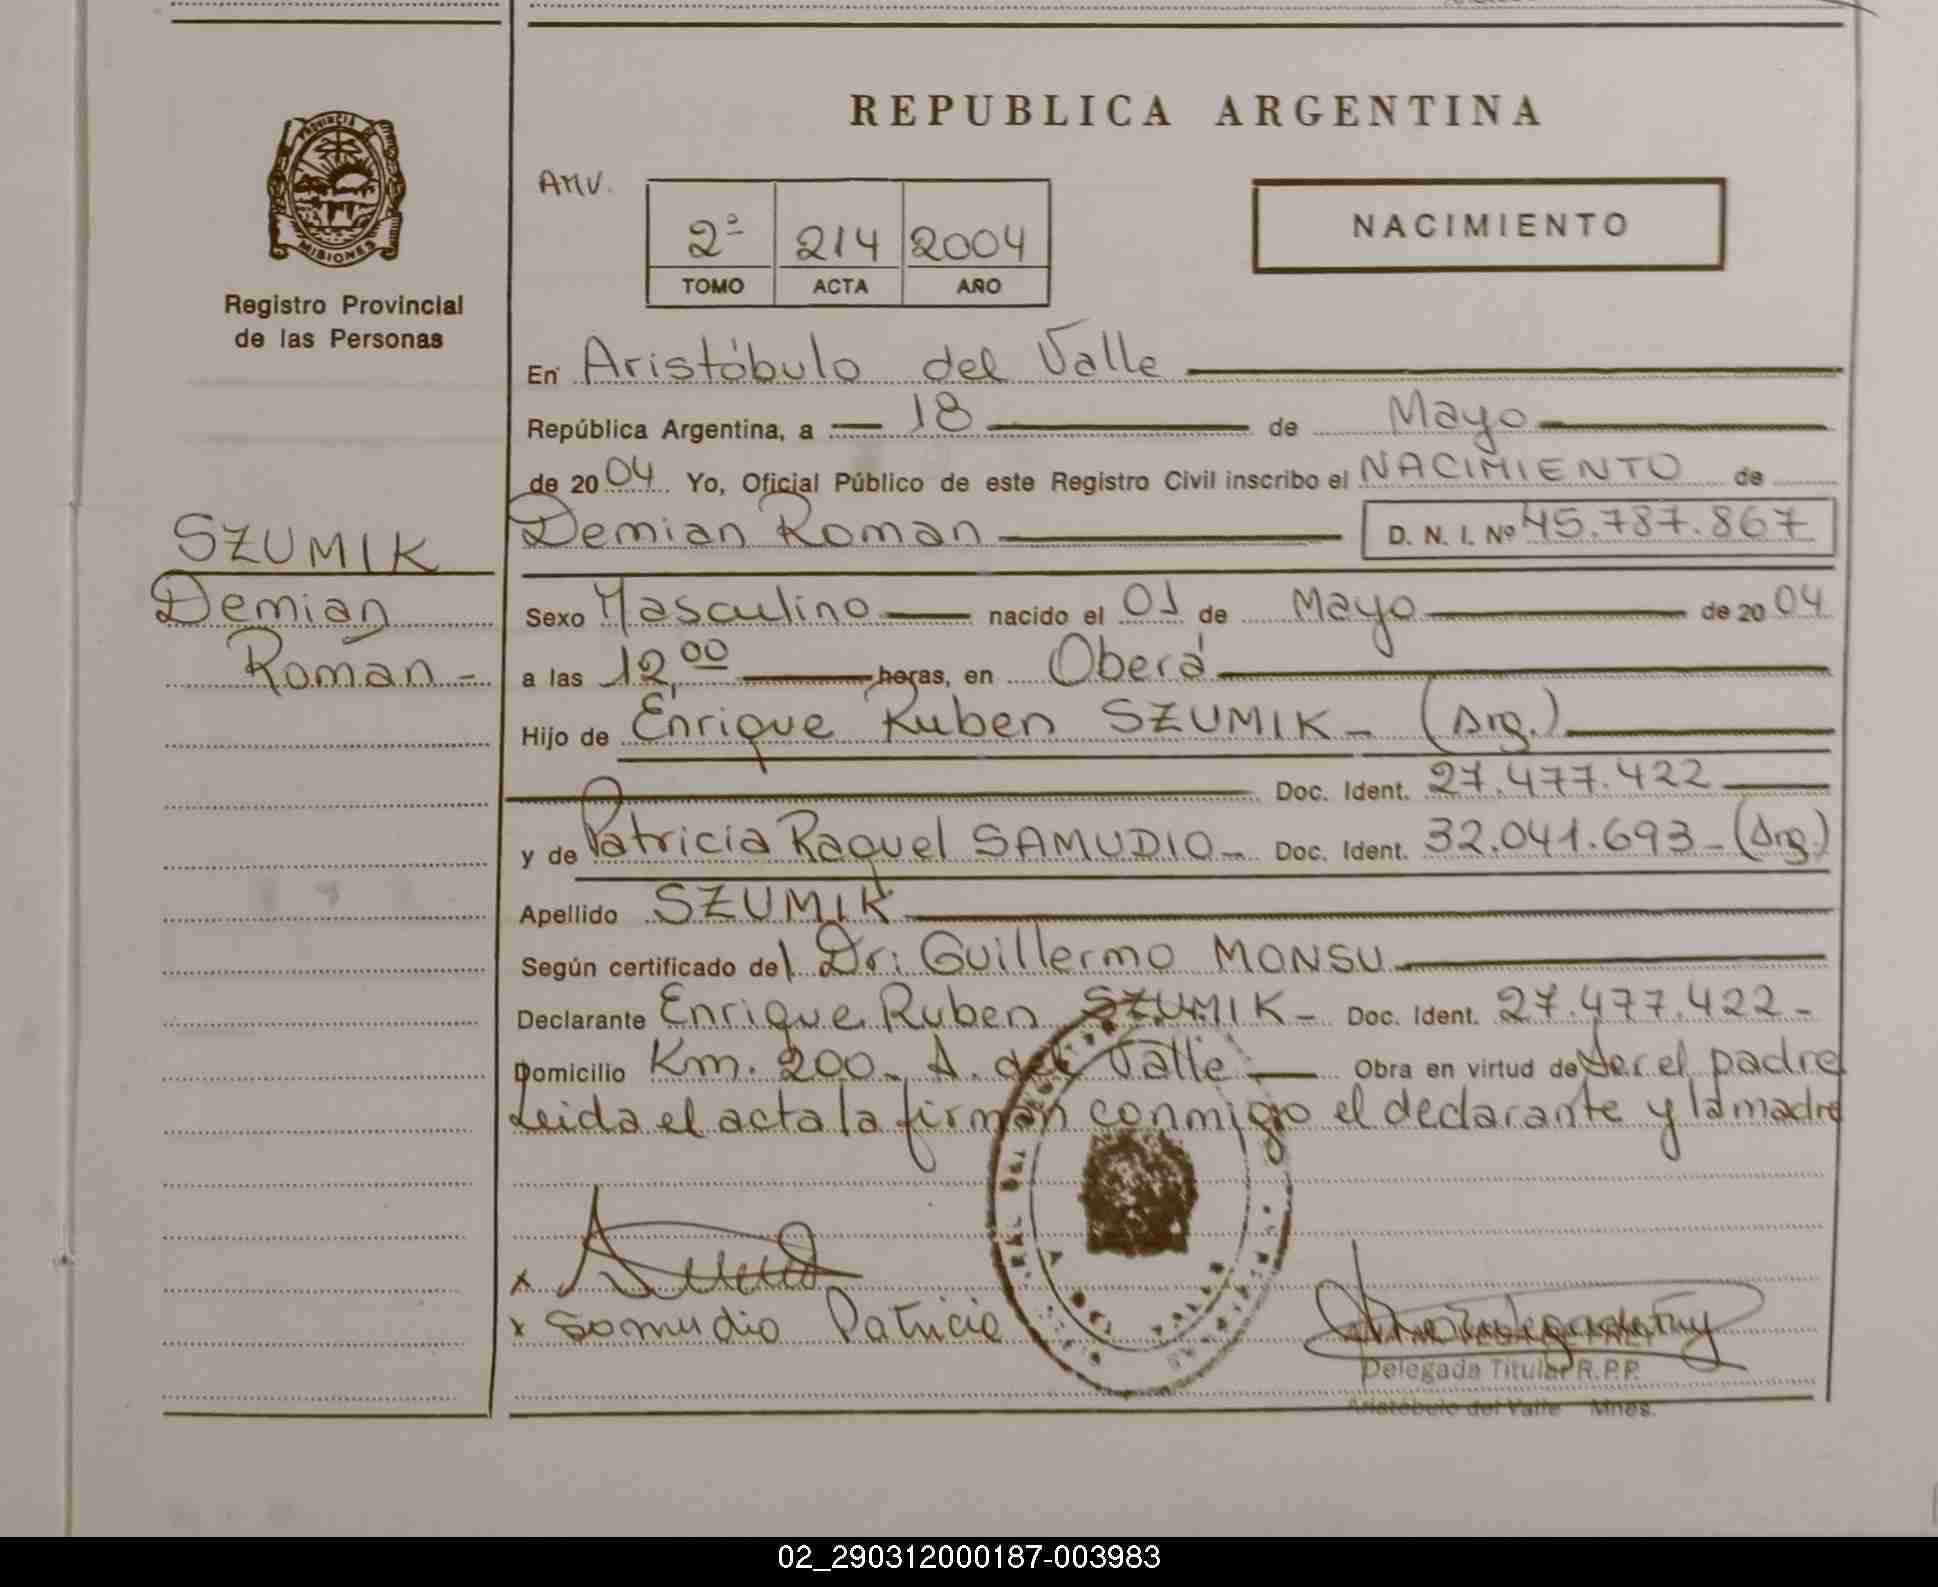 REPUBLICA ARGENTINA
PROVINCIA DE
MISIONES
Registro Provincial
de las Personas
AMV.
2º 214 2004
TOMO ACTA AÑO
NACIMIENTO
SZUMIK
Demian
Román -
En Aristóbulo del Valle
República Argentina, a 18 de Mayo
de 2004 Yo, Oficial Público de este Registro Civil inscribo el NACIMIENTO de
Demian Roman D. N. I. Nº 45.787.867
Sexo Masculino nacido el 01 de Mayo de 2004
a las 12,00 horas, en Oberá
Hijo de Enrique Ruben SZUMIK - (Arg.)
Doc. Ident. 27.477.422
y de Patricia Raquel SAMUDIO - Doc. Ident. 32.041.693 - (Arg.)
Apellido SZUMIK
Según certificado del Dr: Guillermo MONSU
Declarante Enrique Ruben SZUMIK - Doc. Ident. 27.477.422 -
Domicilio Km. 200 - A. del Valle Obra en virtud de Ser el padre
Leida el acta la firman conmigo el declarante y la madre
x
x Samudio Patricia
Delegada Titular R.P.P.
Aristóbulo del Valle Mnes.
02_290312000187-003983